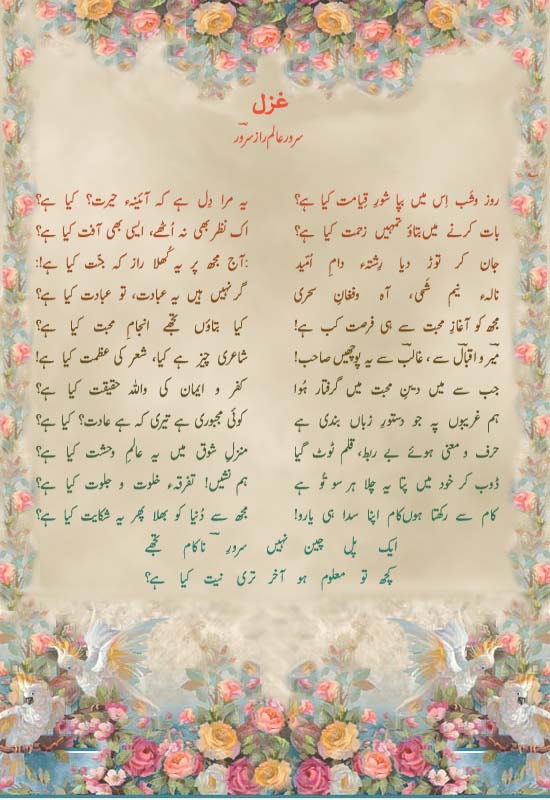 غزل
سرور عالم راز سرور
روز و شب اِس میں بپا شورِ قیامت کیا ہے؟ یہ مرا دِل ہے کہ آئینہء حیرت؟ کیا ہے؟
بات کرنے میں بتاؤ تمہیں زحمت کیا ہے؟ اک نظر بھی نہ اُٹھے، ایسی بھی آفت کیا ہے؟
جان کر توڑ دیا رِشتہء دامِ اُمّید آج مجھ پر یہ کُھلا راز کہ جنّت کیا ہے!:
نالہء نیم شبی، آہ و فغانِ سحری گر نہیں ہیں یہ عبادت، تو عبادت کیا ہے؟
مجھ کو آغازِ محبت سے ہی فرصت کب ہے! کیا بتاؤں تجھے انجامِ محبت کیا ہے؟
میر و اقبال سے، غالب سے یہ پوچھیں صاحب! شاعری چیز ہے کیا، شعر کی عظمت کیا ہے!
جب سے میں دینِ محبت میں گرفتار ہُوا کفر و ایمان کی واللہ حقیقت کیا ہے؟
ہم غریبوں پہ جو دستورِ زباں بندی ہے کوئی مجبوری ہے تیری کہ ہے عادت؟ کیا ہے؟
حرف و معنی ہوئے بے ربط، قلم ٹوٹ گیا منزلِ شوق میں یہ عالمِ وحشت کیا ہے؟
ڈوب کر خود میں پتا یہ چلا ہر سو تُو ہے ہم نشیں! تفرقہء خلوت و جلوت کیا ہے؟
کام سے رکھتا ہوں کام اپنا سدا ہی یارو! مجھ سے دُنیا کو بھلا پھر یہ شکایت کیا ہے؟
ایک پل چین نہیں سرورِ ناکام تجھے
کچھ تو معلوم ہو آخر تری نیت کیا ہے؟